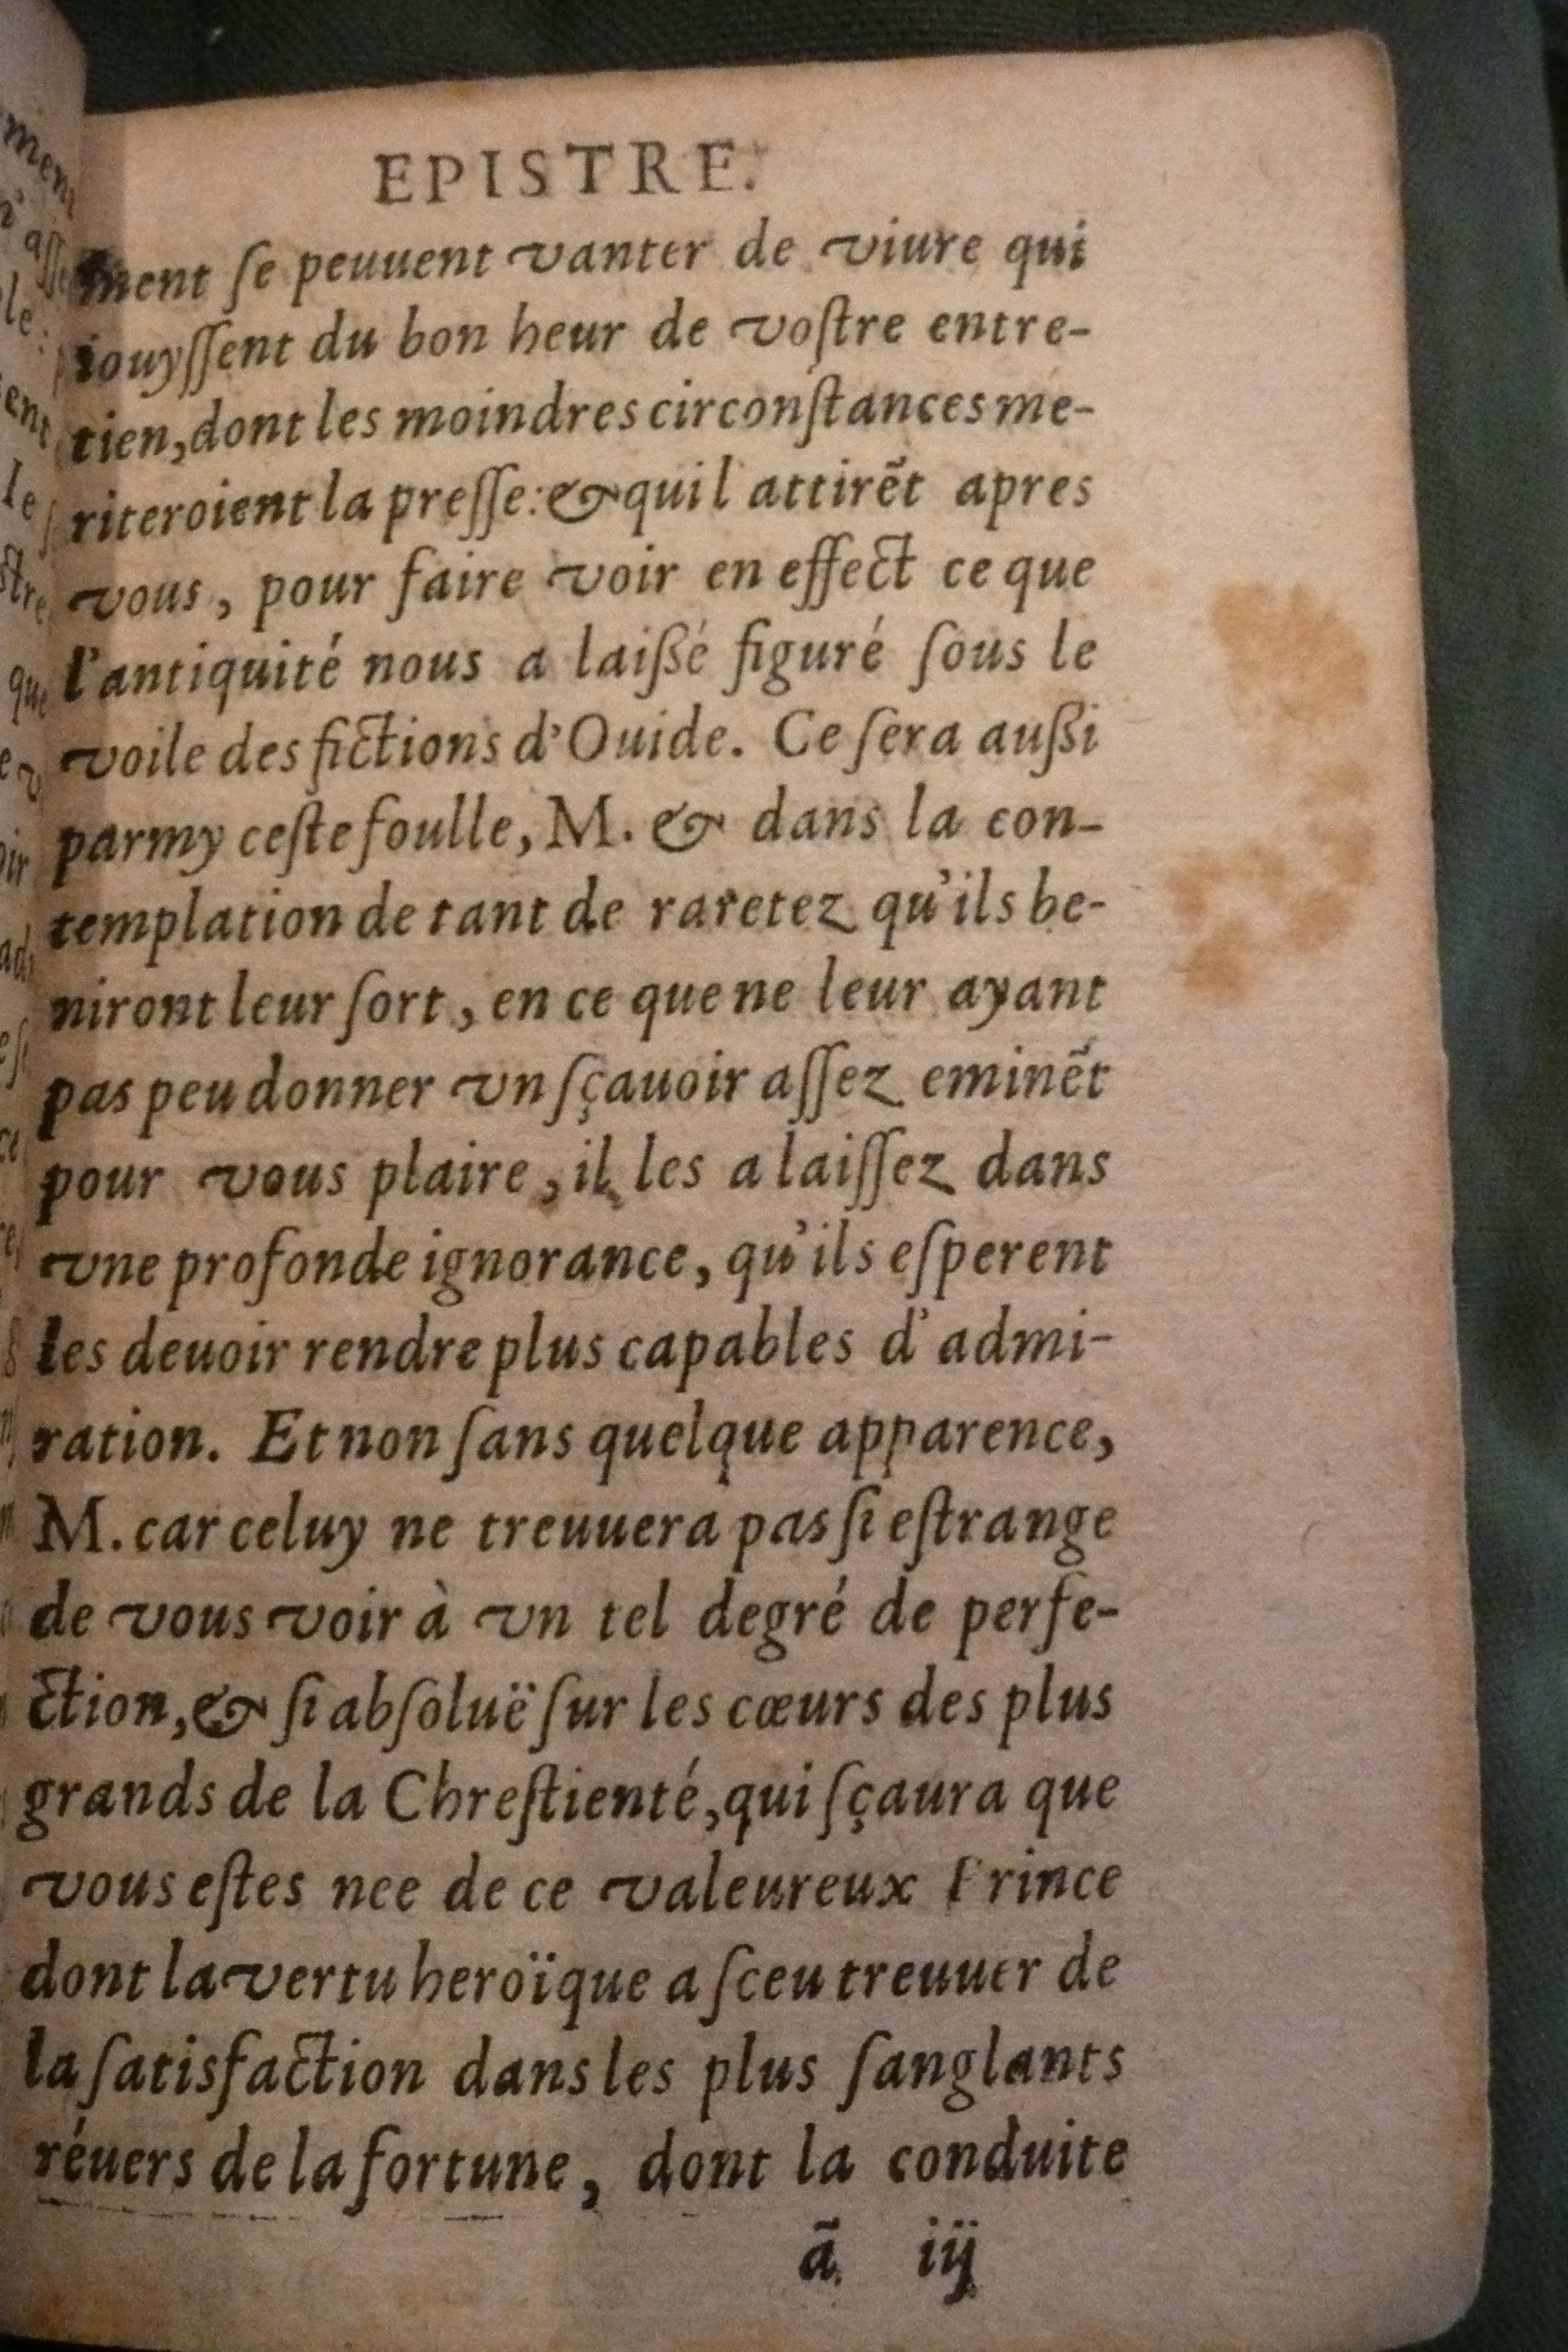 EPISTRE.
ment ſe peuuent vanter de viure qui
iouyſſent du bon heur de voſtre entre-
tien, dont les moindres circonſtances me-
riteroient la preſſe: & quil attirẽt apres
vous, pour faire voir en effect ce que
l'antiquité nous a laißé figuré ſous le
voile des fictions d'Ouide. Ce ſera außi
parmy ceſte foulle, M. & dans la con-
templation de tant de raretez qu'ils be-
niront leur ſort, en ce que ne leur ayant
pas peu donner vn ſçauoir aſſez eminẽt
pour vous plaire, il les a laiſſez dans
vne profonde ignorance, qu'ils eſperent
les deuoir rendre plus capables d'admi-
ration. Et non ſans quelque apparence,
M. car celuy ne treuuera pas ſi eſtrange
de vous voir à vn tel degré de perfe-
ction, & ſi abſoluë ſur les cœurs des plus
grands de la Chreſtienté, qui ſçaura que
vous eſtes nee de ce valeureux Prince
dont la vertu heroïque a ſceu treuuer de
la ſatisfaction dans les plus ſanglants
réuers de la fortune, dont la conduite
ã iij